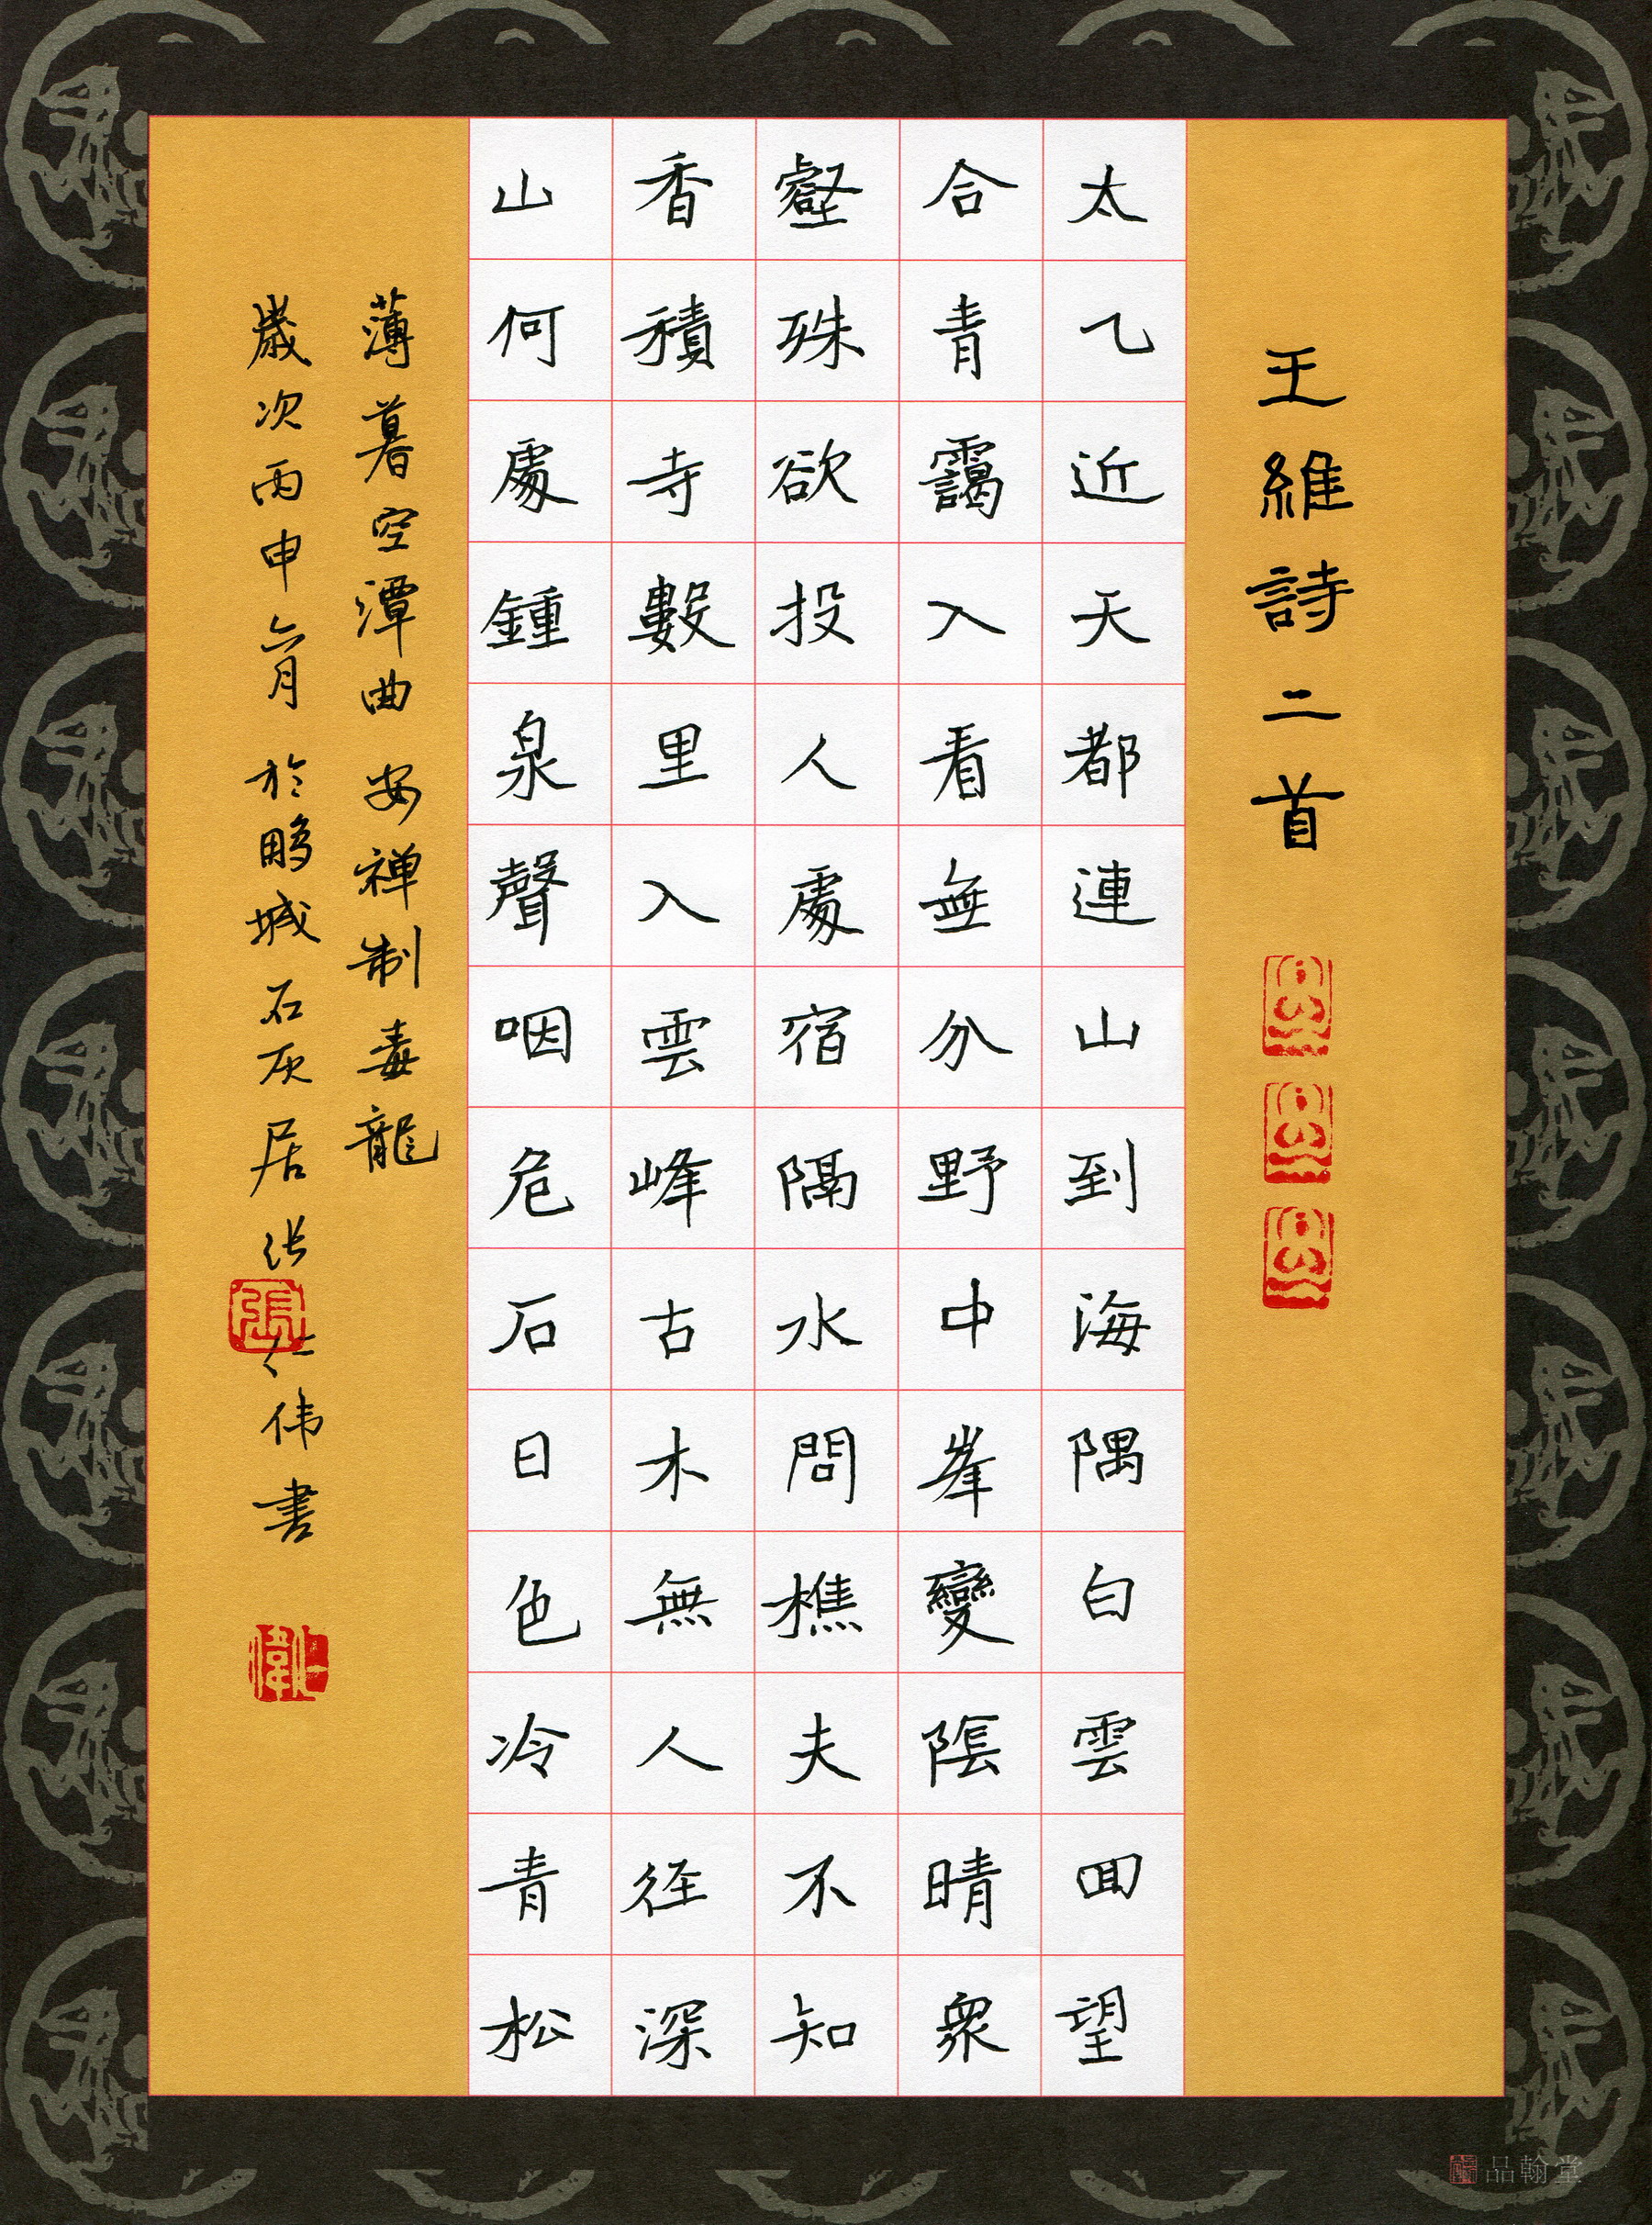 王維詩二首
太乙近天都連山到海隅白雲回望
合青靄入看無分野中峯變陰晴衆
壑殊欲投人處宿隔水問樵夫不知
香積寺數里入雲峰古木無人徑深
山何處鍾泉聲咽危石日色冷青松
薄暮空潭曲安禅制毒龍
歲次丙申六月於鹏城石灰居张仁伟書
張
品翰堂